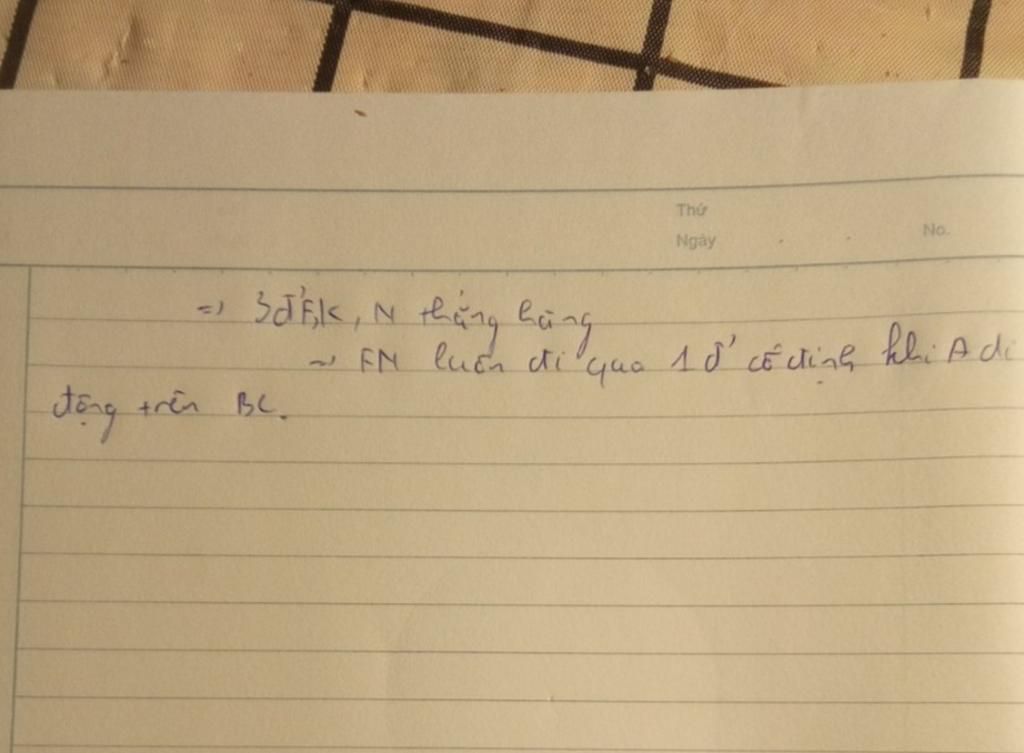 Thứ
Ngày
No.
=> 3 đ' F, K, N thẳng hàng
=> FN luôn đi qua 1 đ' cố định khi A di
động trên BC.